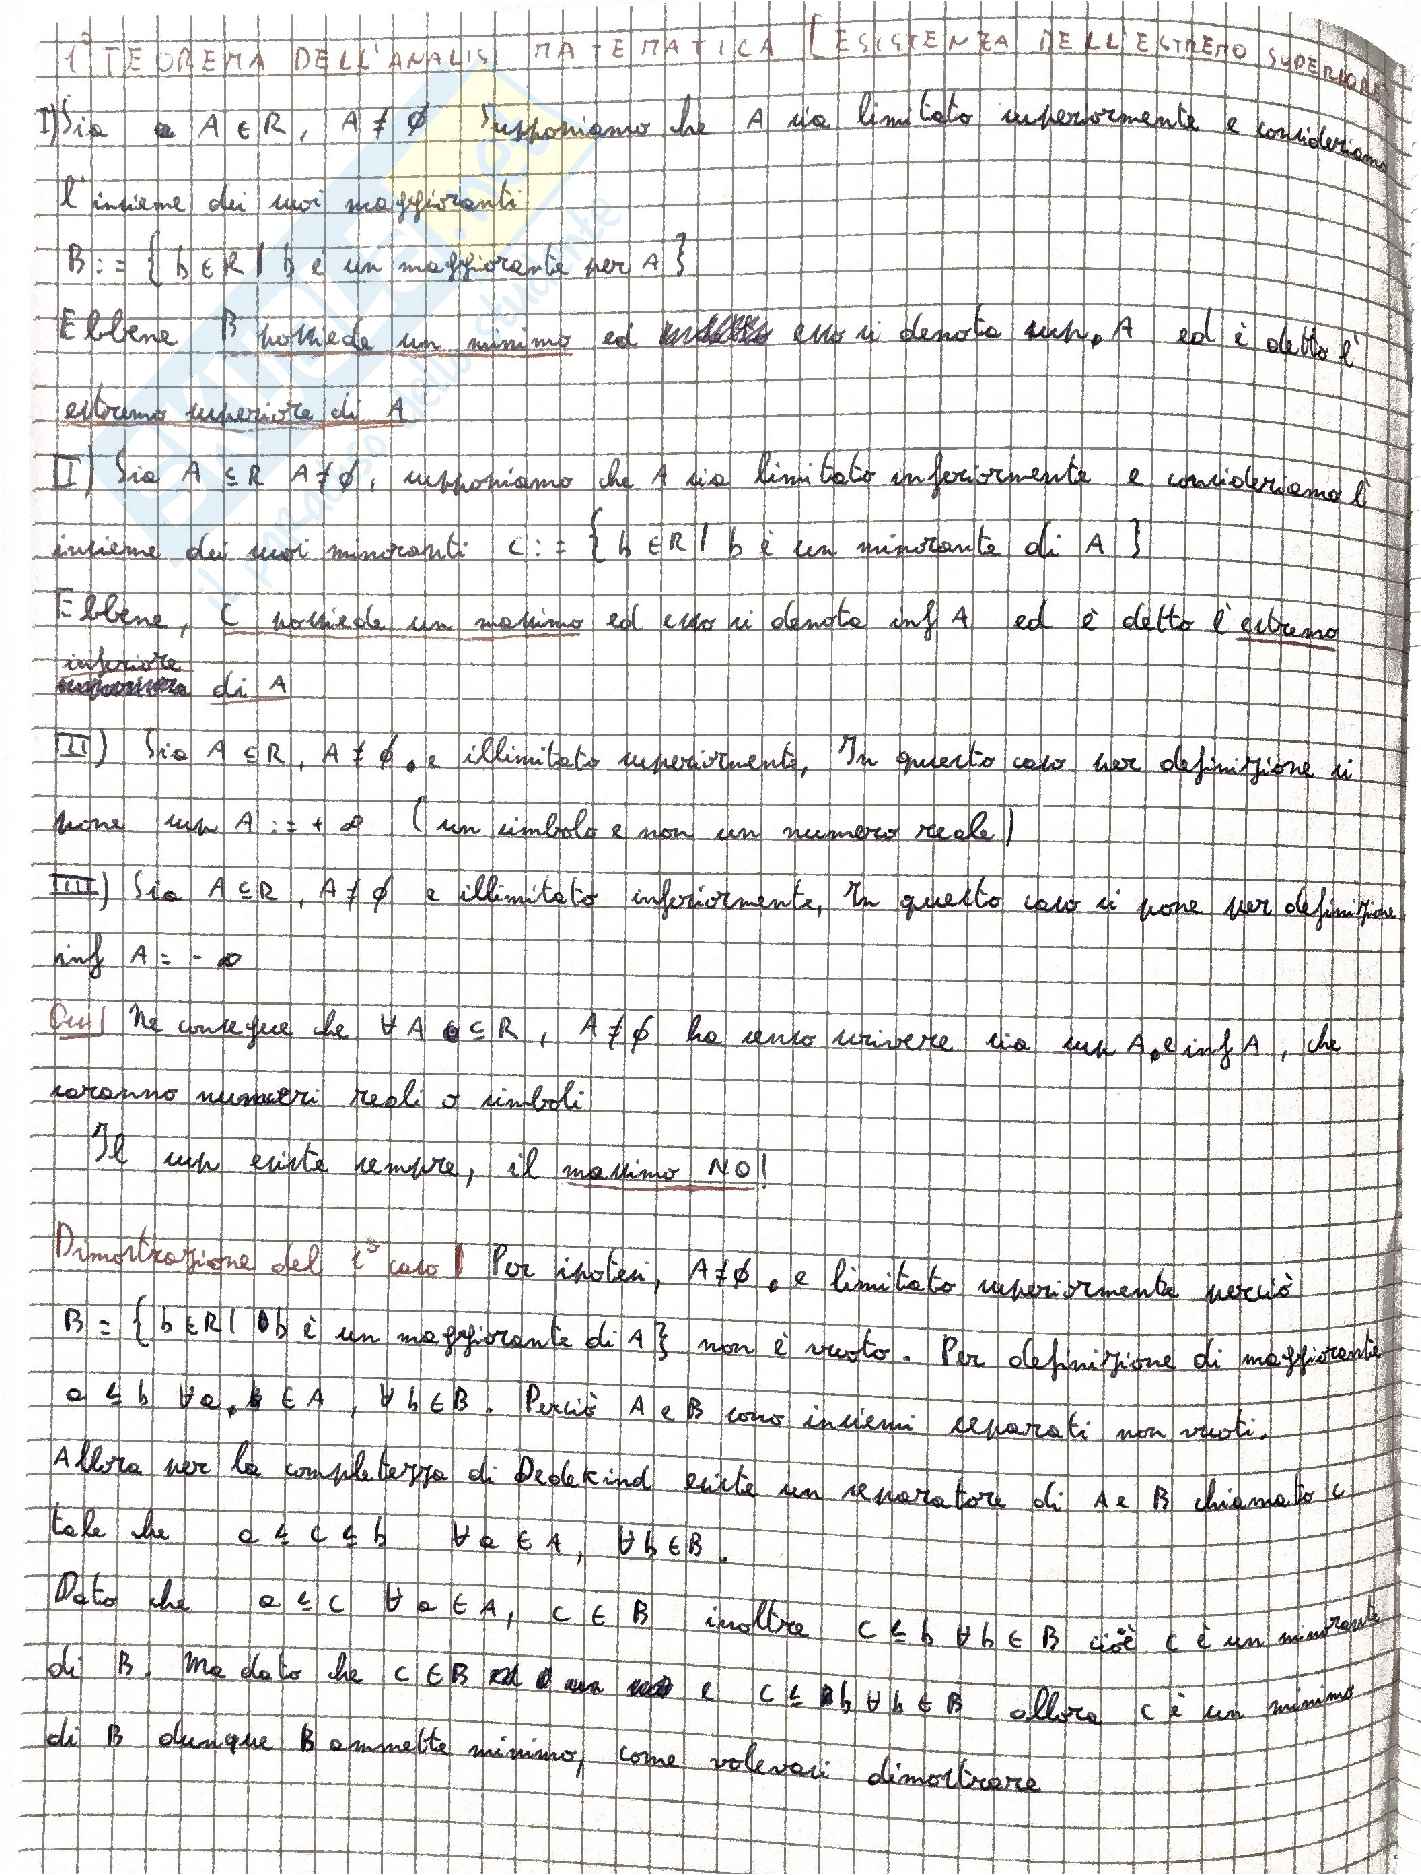 1° TEOREMA DELL'ANALISI MATEMATICA [ESISTENZA DELL'ESTREMO SUPERIORE
I) Sia A ∈ R, A ≠ ∅ Supponiamo che A sia limitato superiormente e consideriamo
l'insieme dei suoi maggioranti
B := { b ∈ R | b è un maggiorante per A }
Ebbene B possiede un minimo ed esso si denota sup A ed è detto l'
estremo superiore di A
II) Sia A ⊆ R A ≠ ∅, supponiamo che A sia limitato inferiormente e consideriamo l'
insieme dei suoi minoranti C := { b ∈ R | b è un minorante di A }
Ebbene, C possiede un massimo ed esso si denota inf A ed è detto l'estremo
inferiore
di A
III) Sia A ⊆ R, A ≠ ∅ e illimitato superiormente, In questo caso per definizione si
pone sup A := + ∞ (un simbolo e non un numero reale)
IIII) Sia A ⊆ R, A ≠ ∅ e illimitato inferiormente, In questo caso si pone per definizione
inf A = - ∞
Ne consegue che ∀ A ⊆ R, A ≠ ∅ ha senso scrivere sia sup A e inf A, che
saranno numeri reali o simboli
Il sup esiste sempre, il massimo NO!
Dimostrazione del 1° caso | Per ipotesi, A ≠ ∅ e limitato superiormente perciò
B = { b ∈ R | b è un maggiorante di A } non è vuoto. Per definizione di maggiorante
a ≤ b ∀ a ∈ A, ∀ b ∈ B. Perciò A e B sono insiemi separati non vuoti.
Allora per la completezza di Dedekind esiste un separatore di A e B chiamato c
tale che a ≤ c ≤ b ∀ a ∈ A, ∀ b ∈ B.
Dato che a ≤ c ∀ a ∈ A, c ∈ B inoltre c ≤ b ∀ b ∈ B cioè c è un minorante
di B. Ma dato che c ∈ B e c ≤ b ∀ b ∈ B allora c è un minimo
di B dunque B ammette minimo, come volevasi dimostrare